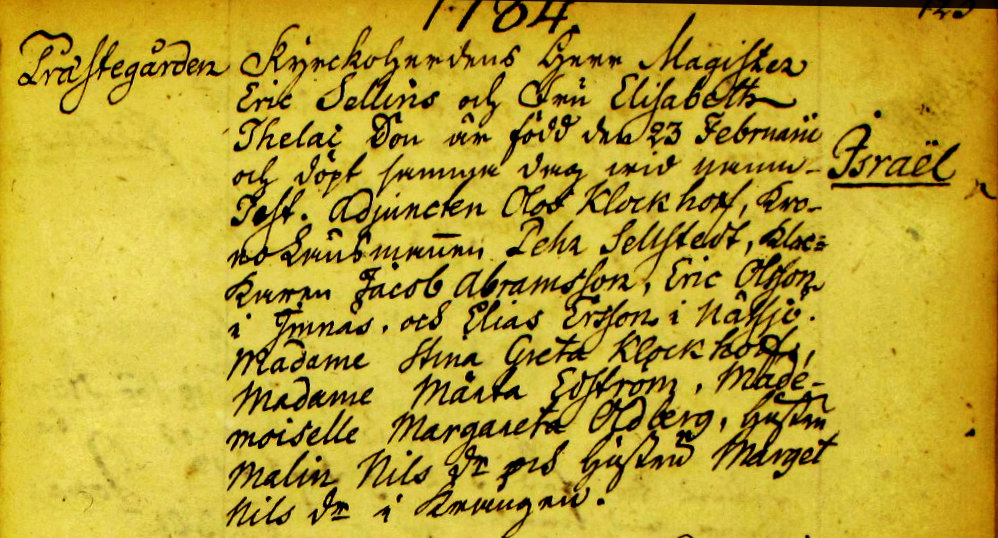 1784.
123
Prästegården Kyrckoherdens Herr Magister
Eric Sellins och Fru Elisabeth
Thelai Son är född den 23 Februarii
och döpt samma dag wid namn- Israël
Test. Adjuncten Olof Klockhoff, Kro-
no Länsmannen Pehr Sellstedt, Kloc-
karen Jacob Abramsson, Eric Olsson
i Imnäs, och Elias Ersson i Nässjö.
Madame Stina Greta Klockhoff,
Madame Märta Edström, Made-
moiselle Margareta Oldberg, Hustru
Malin Nils dr och Hustru Marget
Nils dr i Krången.